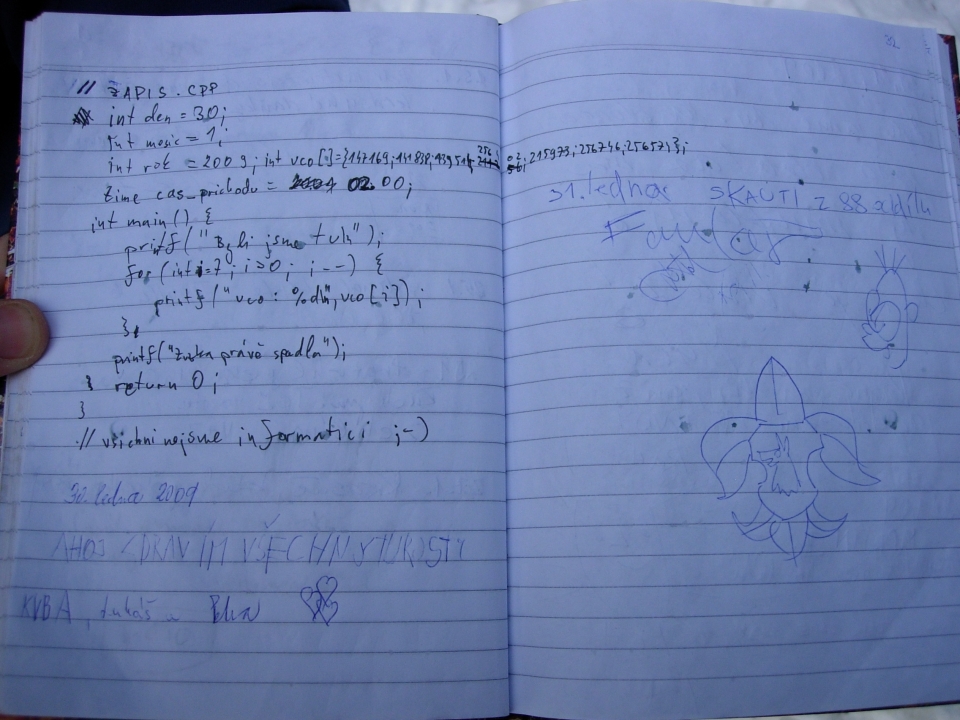 // ZAPIS.CPP
int den = 30;
int mesic = 1;
int rok = 2009; int vco[.]={147169;141838;139511; 215973;256746;25657,};
time cas_prichodu = 02.00;
int main() {
printf("Byli jsme tu\n");
for (int i=7; i>0; i--) {
printf("vco: %d\n",vco[i]);
};
printf("právě spadla");
return 0;
}
// všichni nejsme informatici ;-)
30. ledna 2009
AHOJ ZDRAVÍM VŠECHNY TURISTY
KUBA, Lukáš
82
31. ledna SKAUTI Z 88 oddílu